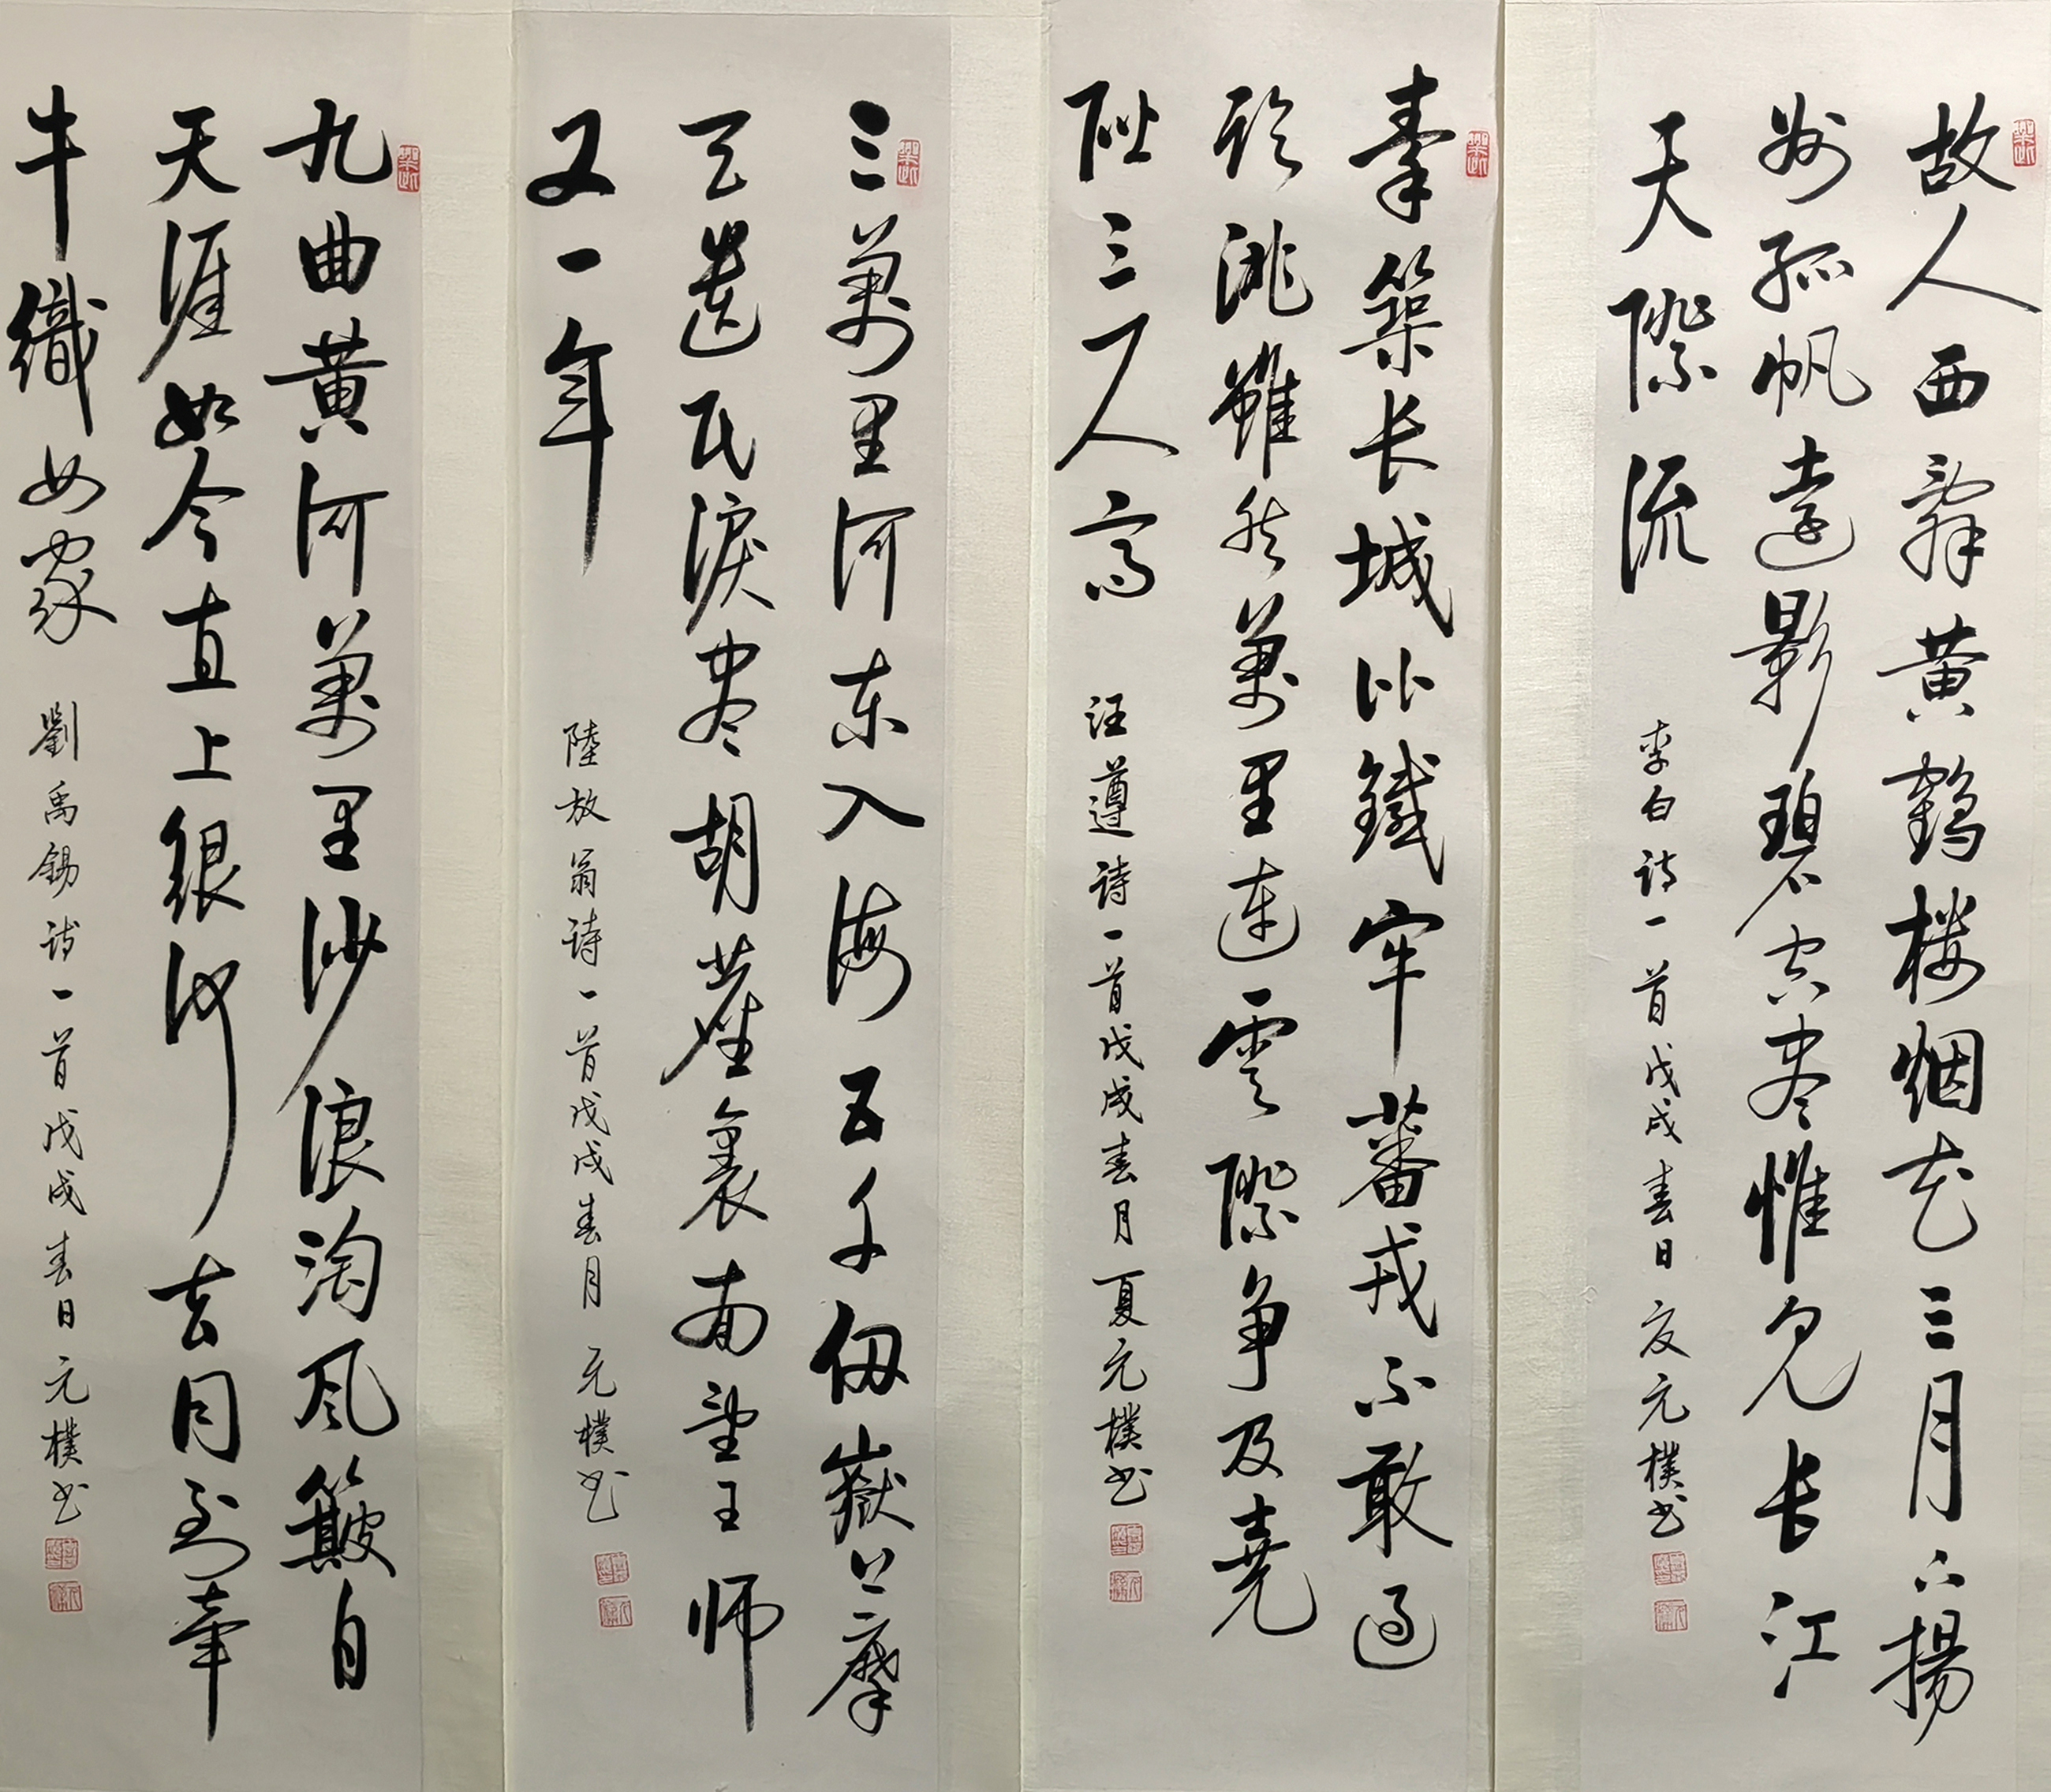 故人西辞黄鹤楼烟花三月下揚
州孤帆遠影碧空尽惟见长江
天際流
李白诗一首戊戌春日夏元樸书
秦築长城比鐵牢蕃戎不敢過
臨洮雖然萬里連雲際争及堯
階三尺高
汪遵诗一首戊戌春月夏元樸书
三萬里河东入海五千仞嶽上摩
天遗民淚尽胡塵裏南望王师
又一年
陸放翁诗一首戊戌春月元樸书
九曲黄河萬里沙浪淘风簸自
天涯如今直上银河去同到牽
牛織女家
劉禹錫诗一首戊戌春日元樸书